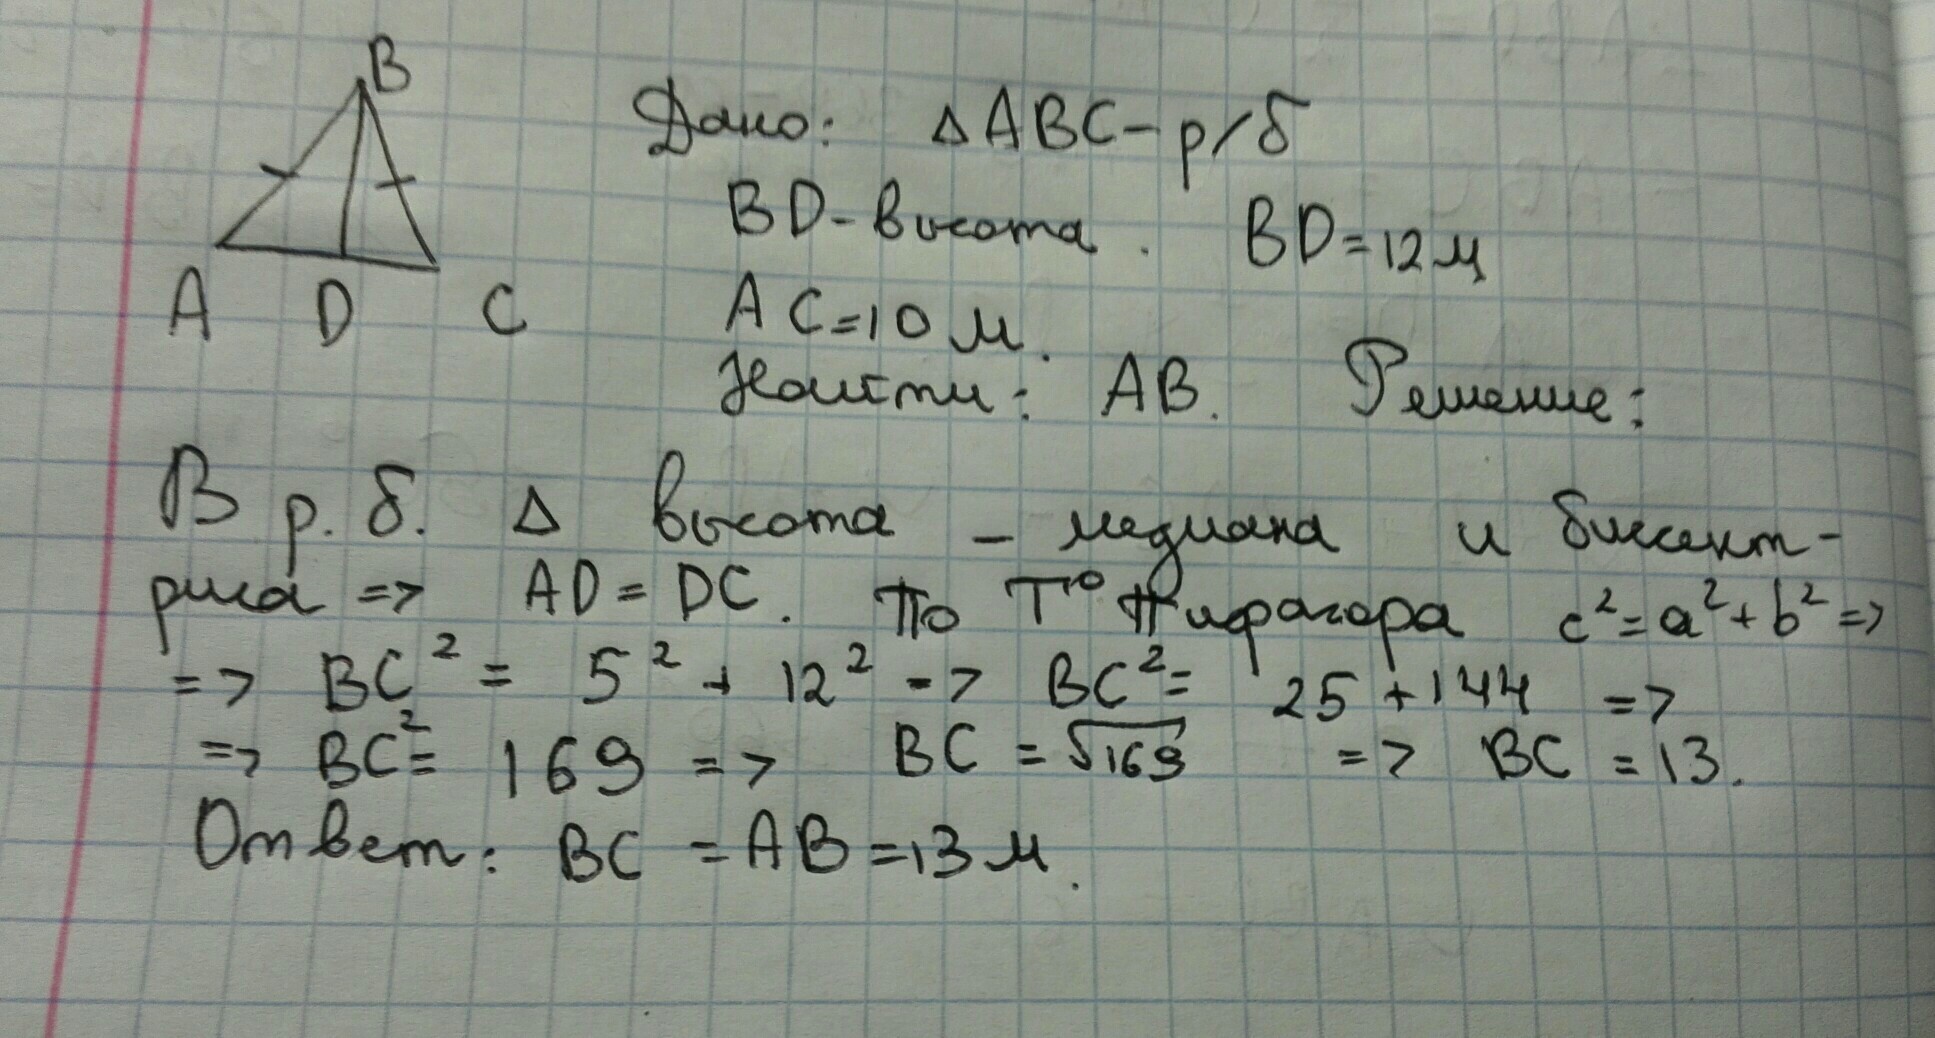 B
A D C
Дано: △ABC - р/б
BD - высота. BD = 12 м
AC = 10 м.
Найти: AB. Решение:
В р.б. △ высота - медиана и биссект-
риса => AD = DC. По Т° Пифагора c² = a² + b² =>
=> BC² = 5² + 12² => BC² = 25 + 144 =>
=> BC² = 169 => BC = √169 => BC = 13.
Ответ: BC = AB = 13 м.